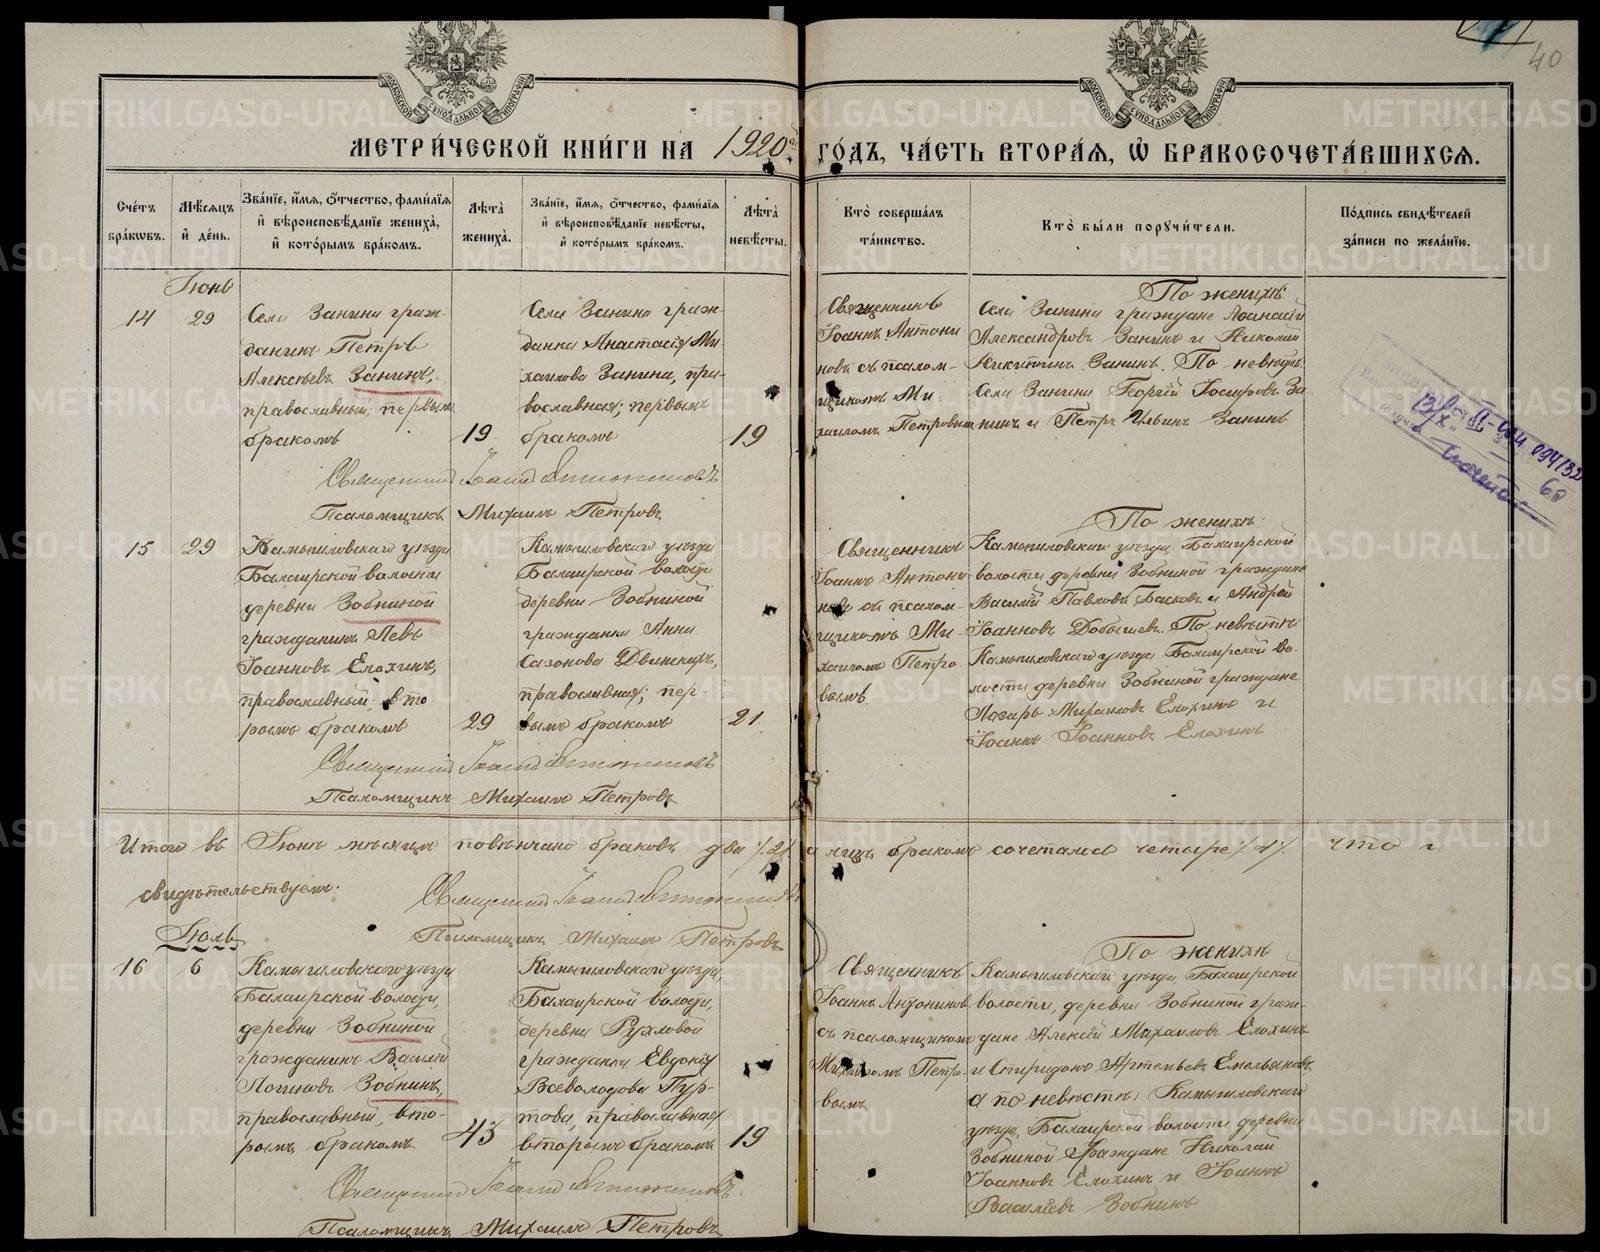 40
МОСКОВСКОЙ СѴНОДАЛЬНОЙ ТИПОГРАФІИ
МОСКОВСКОЙ СѴНОДАЛЬНОЙ ТИПОГРАФІИ
МЕТРИ́ЧЕСКОЙ КНИ́ГИ НА 1920й ГО́ДЪ, ЧА́СТЬ ВТОРА́Я, Ѡ БРАКОСОЧЕТА́ВШИХСЯ.
Сче́тъ бра́кѡвъ.
Мѣ́сяцъ и҆ де́нь.
Зва́нїе, и҆́мя, ѻ҆́тчество, фами́лїя и҆ вѣроисповѣ́данїе жениха̀, и҆ кото́рымъ бра́комъ.
Лѣ́та жениха̀.
Зва́нїе, и҆́мя, ѻ҆́тчество, фами́лїя и҆ вѣроисповѣ́данїе невѣ́сты, и҆ кото́рымъ бра́комъ.
Лѣ́та невѣ́сты.
Кто̀ соверша́лъ та́инство.
Кто̀ бы́ли порꙋчи́тели.
По́дпись свидѣ́телей за́писи по жела́нїю.
Іюнь
14
29
Села Занина граж-
данинъ Петръ
Алексѣевъ Занинъ,
православный; первымъ
бракомъ
19
Села Занина граж-
данка Анастасія Ми-
хаилова Занина, пра-
вославная; первымъ
бракомъ
19
Священникъ
Іоаннъ Антони
новъ съ псалом-
щикомъ Ми-
хаиломъ Петровым
По женихѣ
Села Занина граждане Аѳанасій
Александровъ Занинъ и Николай
Никитинъ Занинъ. По невѣстѣ
Села Занина Георгій Іосифовъ За
нинъ и Петръ Ильинъ Занинъ
Священникъ Іоаннъ Антониновъ
Псаломщикъ Михаилъ Петровъ
15
29
Камышловскаго уѣзда
Балаирской волости
деревни Зобниной
гражданинъ Левъ
Іоанновъ Елохинъ,
православный; вто-
рымъ бракомъ
29
Камышловскаго уѣзда
Балаирской волости
деревни Зобниной
гражданка Анна
Сазонова Двинскихъ,
православная; пер-
вымъ бракомъ
21.
Священникъ
Іоаннъ Антони
новъ съ псалом-
щикомъ Ми-
хаиломъ Петро
вымъ
По женихѣ
Камышловскаго уѣзда, Балаирской
волости деревни Зобниной граждане
Василій Павловъ Басковъ и Андрей
Іоанновъ Добышевъ. По невѣстѣ
Камышловскаго уѣзда Балаирской во-
лости деревни Зобниной граждане
Лазарь Михаиловъ Елохинъ и
Іоаннъ Іоанновъ Елохинъ
Священникъ Іоаннъ Антониновъ
Псаломщикъ Михаилъ Петровъ
Итого въ Іюнѣ мѣсяцѣ повѣнчано браковъ два /2/ а лицъ бракомъ сочеталось четыре /4/ что и
свидѣтельствуемъ:
Священникъ Іоаннъ Антониновъ
Псаломщикъ Михаилъ Петровъ
Іюль
16
6
Камышловскаго уѣзда
Балаирской волости,
деревни Зобниной
гражданинъ Василій
Логиновъ Зобнинъ,
православный, вто-
рымъ бракомъ
43
Камышловскаго уѣзда,
Балаирской волости,
деревни Рухловой
гражданка Евдокія
Всеволодова Пур-
това, православная
вторымъ бракомъ
19
Священникъ
Іоаннъ Антониновъ
съ псаломщикомъ
Михаиломъ Петро-
вымъ
По женихѣ
Камышловскаго уѣзда, Балаирской
волости, деревни Зобниной граж-
дане Алексѣй Михаиловъ Елохинъ
и Спиридонъ Артемьевъ Емельяновъ,
а по невѣстѣ Камышловскаго
уѣзда, Балаирской волости деревни
Зобниной Граждане Николай
Іоанновъ Елохинъ и Іоаннъ
Васильевъ Зобнинъ
Священникъ Іоаннъ Антониновъ
Псаломщикъ Михаилъ Петровъ
METRIKI.GASO-URAL.RU